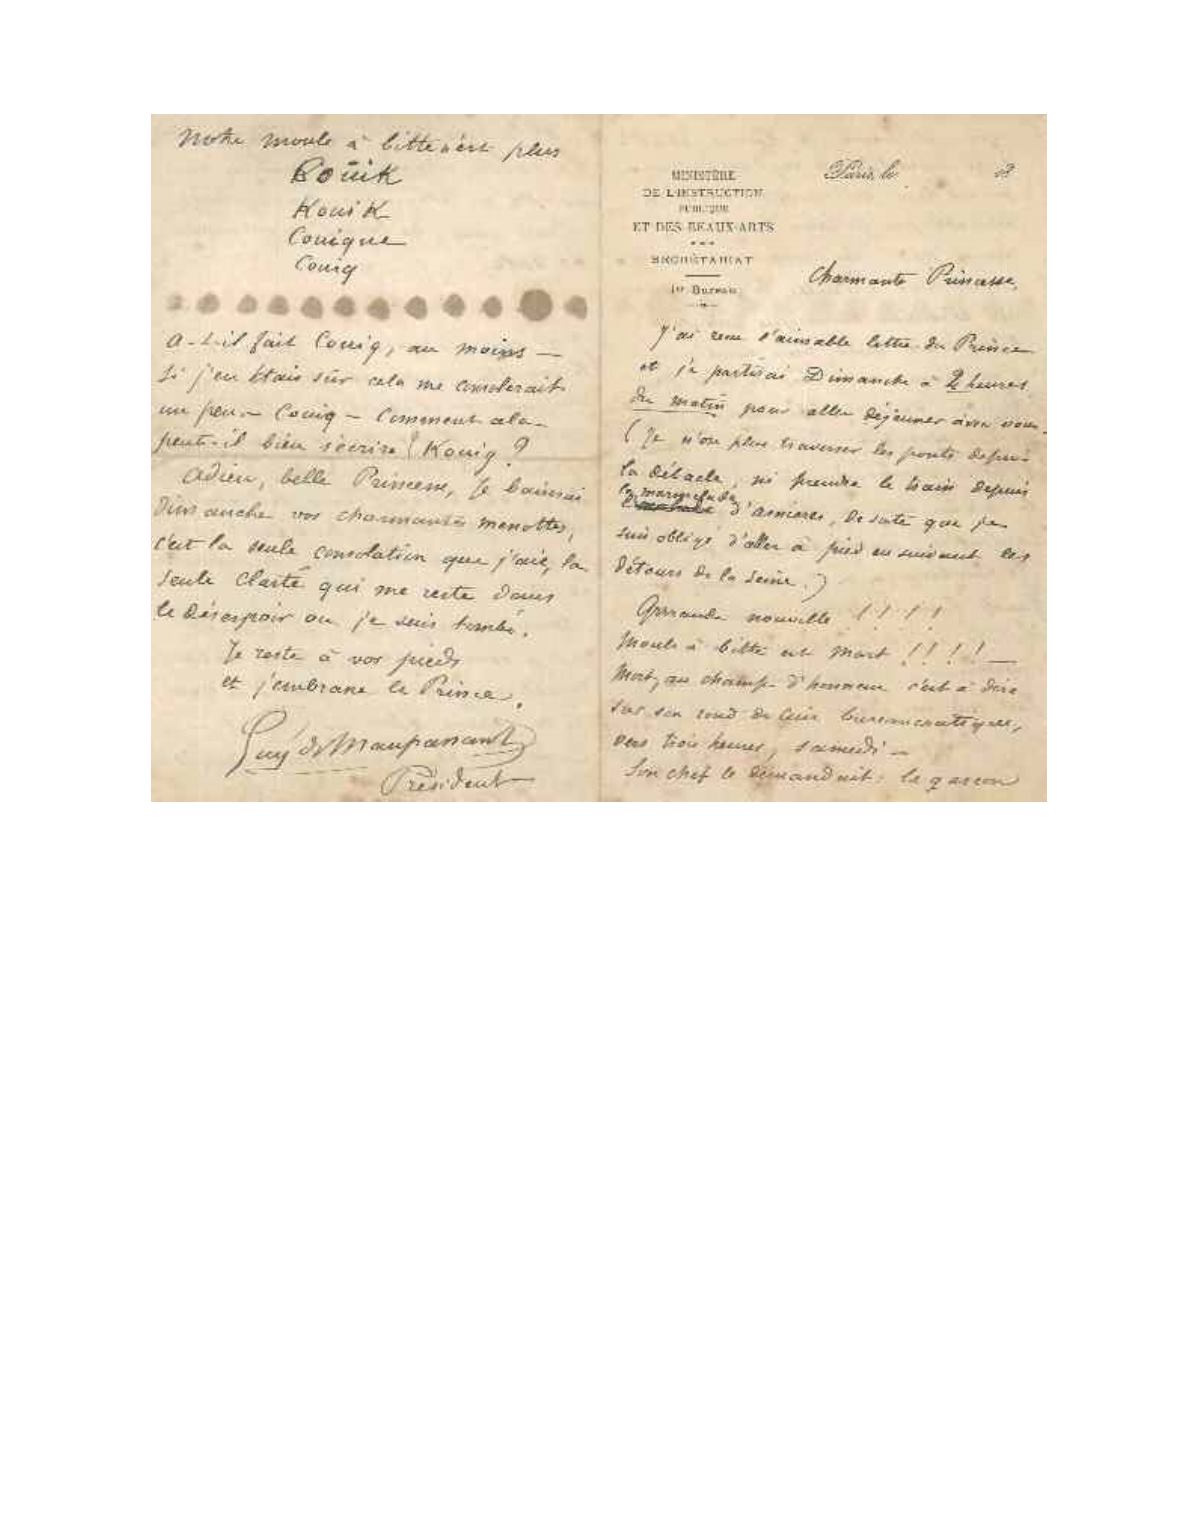 MINISTÈRE
DE L'INSTRUCTION
PUBLIQUE
ET DES BEAUX-ARTS
SECRÉTARIAT
1er Bureau
Paris, le 18
Charmante Princesse,
J'ai reçu l'aimable lettre du Prince
et je partirai Dimanche à 2 heures
du matin pour aller déjeuner avec vous.
(Je n'ose plus traverser les ponts depuis
la débacle, ni prendre le train depuis
la marmelade
d'asnieres, de sorte que je
suis obligé d'aller à pied en suivant les
détours de la Seine.)
Grrrande nouvelle !!!!
Moule à bitte est mort !!!! —
Mort, au champ d'honneur c'est à dire
sur son rond de cuir bureaucratique,
vers trois heures, samedi —
Son chef le demandait : le garçon
Notre moule à bitte n'est plus
Koüik
Kouik
Couique
Couiq
A-t-il fait Couiq, au moins —
Si j'en étais sûr cela me consolerait
un peu — Couiq — Comment cela
peut-il bien s'écrire ? Kouiq ?
Adieu, belle Princesse, Je baiserai
Dimanche vos charmantes menottes,
c'est la seule consolation que j'aie, la
seule clarté qui me reste dans
le désespoir ou je suis tombé.
Je reste à vos pieds
et j'embrasse le Prince.
Guy de Maupassant
Président